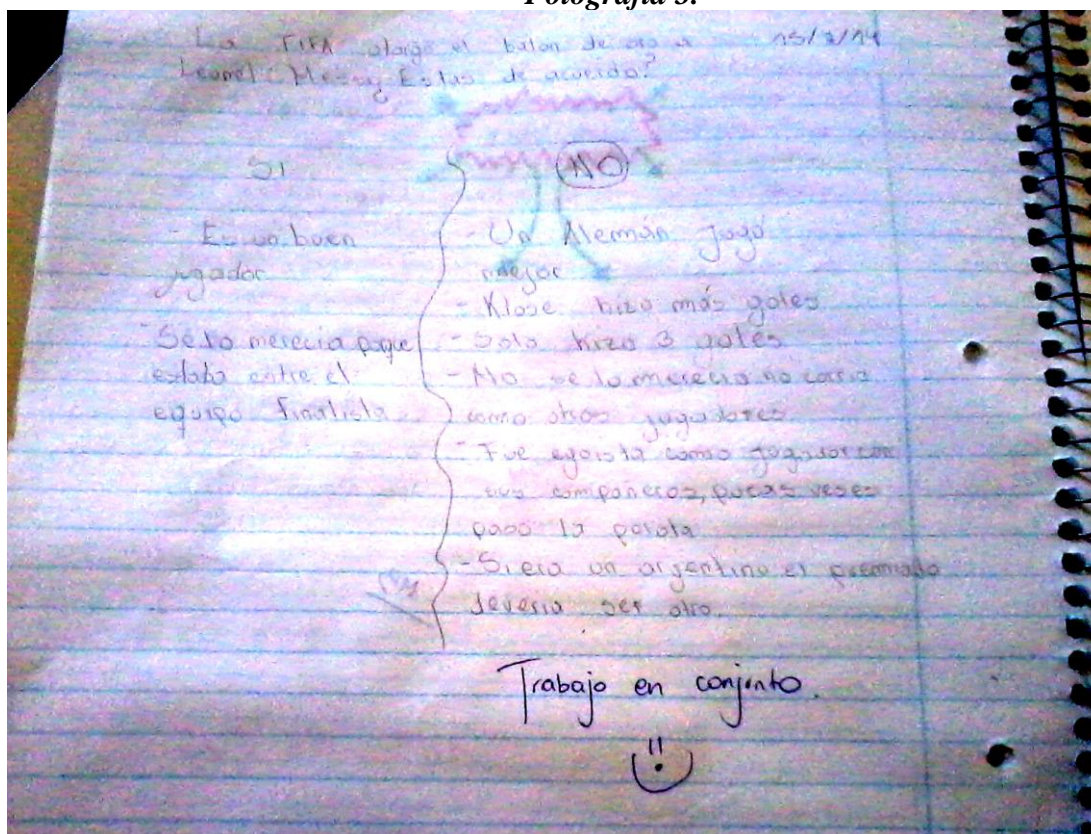 Fotografía 3.
La FIFA otorgó el balón de oro a 15/7/14
Leonel Messy Estas de acuerdo?
Si
NO
- Es un buen
jugador
- Se lo merecía
estaba entre el
equipo finalista
- Un Alemán jugó
mejor
- Klose hizo más goles
- Solo hizo 3 goles
- No se lo merecia no corria
como otros jugadores
- Fue egoista como jugador con
sus compañeros, pocas veses
paso la pelota
- Si era un argentino el premiado
deveria ser otro.
Trabajo en conjunto.